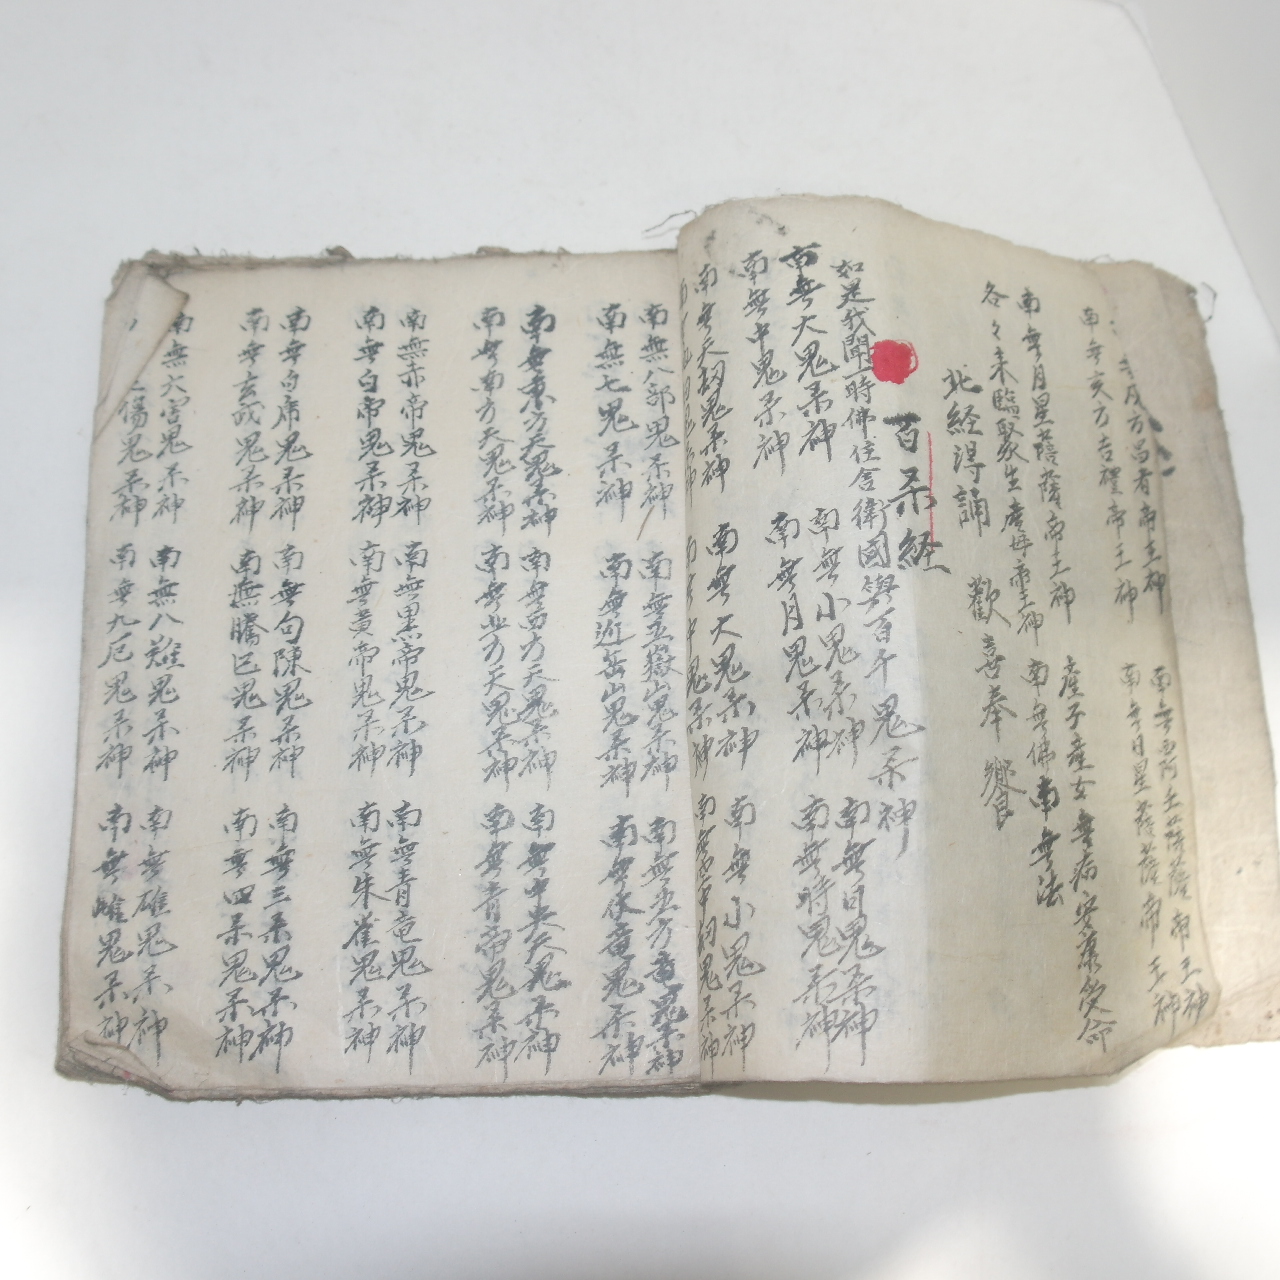 南無亥方吉禮帝王神
南無日星薩薩帝王神
南無月星薩薩帝王神
產子產女無病安康受命
各々来臨聚生產母帝王神
南無佛南無法
北経得誦 歡喜奉饗
百杀経
如是我聞一時佛住舍衛國與百千鬼杀神
南無大鬼杀神 南無小鬼杀神 南無日鬼杀神
南無中鬼杀神 南無月鬼杀神 南無時鬼杀神
南無天㓛鬼杀神 南無大鬼杀神 南無小鬼杀神
南無八部鬼杀神 南無五嶽山鬼杀神 南無五方竜鬼杀神
南無七鬼杀神 南無近岳山鬼杀神 南無伏竜鬼杀神
南無東方天鬼杀神 南無西方天鬼杀神 南無中央天鬼杀神
南無南方天鬼杀神 南無北方天鬼杀神 南無青帝鬼杀神
南無赤帝鬼杀神 南無黒帝鬼杀神 南無青竜鬼杀神
南無白帝鬼杀神 南無黄帝鬼杀神 南無朱雀鬼杀神
南無白席鬼杀神 南無句陳鬼杀神 南無三杀鬼杀神
南無玄武鬼杀神 南無騰巳鬼杀神 南無四杀鬼杀神
南無六害鬼杀神 南無八難鬼杀神 南無碓鬼杀神
傷鬼杀神 南無九厄鬼杀神 南無鬼杀神